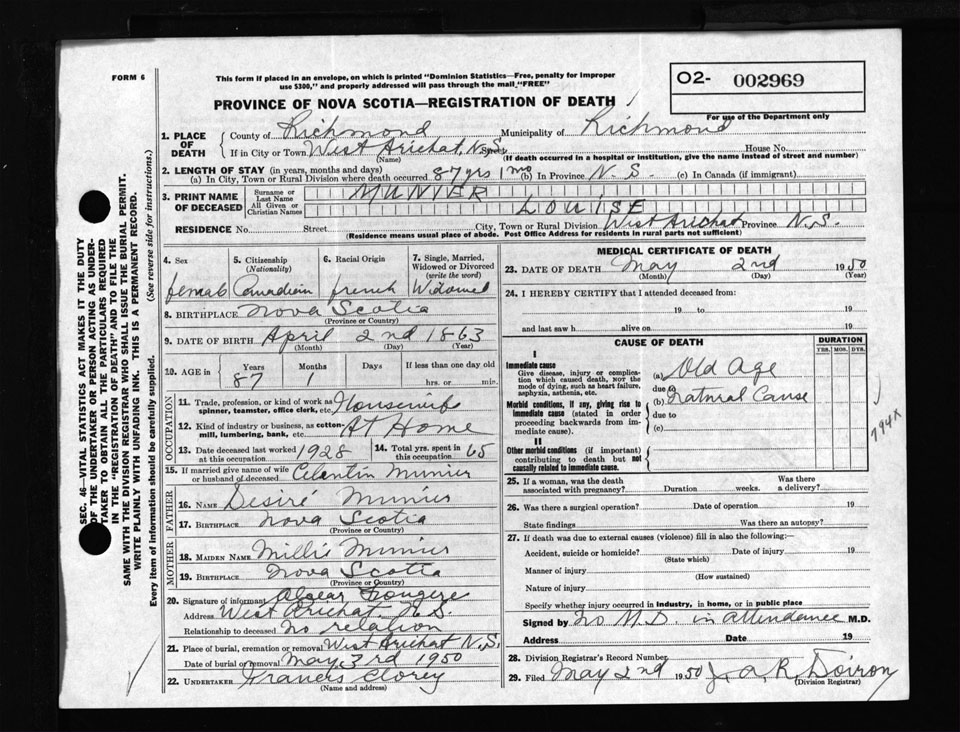 FORM 6
This form if placed in an envelope, on which is printed "Dominion Statistics—Free, penalty for improper
use $300," and properly addressed will pass through the mail "FREE"
O2- 002969
For use of the Department only
PROVINCE OF NOVA SCOTIA—REGISTRATION OF DEATH
1. PLACE OF DEATH County of Richmond Municipality of Richmond
If in City or Town West Arichat, N.S. House No.
(Name) (If death occurred in a hospital or institution, give the name instead of street and number)
2. LENGTH OF STAY (in years, months and days)
(a) In City, Town or Rural Division where death occurred 87 yrs 1 mo (b) In Province N. S. (c) In Canada (if immigrant)
3. PRINT NAME OF DECEASED Surname or Last Name MUNIER
All Given or Christian Names LOUISE
RESIDENCE No. Street City, Town or Rural Division West Arichat Province N.S.
(Residence means usual place of abode. Post Office Address for residents in rural parts not sufficient)
4. Sex 5. Citizenship (Nationality) 6. Racial Origin 7. Single, Married, Widowed or Divorced (write the word)
female Canadian french Widowed
8. BIRTHPLACE Nova Scotia
(Province or Country)
9. DATE OF BIRTH April 2nd 1863
(Month) (Day) (Year)
10. AGE in Years Months Days If less than one day
87 1 hrs. or min.
OCCUPATION
11. Trade, profession, or kind of work as spinner, teamster, office clerk, etc. Housewife
12. Kind of industry or business, as cotton-mill, lumbering, bank, etc. At Home
13. Date deceased last worked at this occupation 1928 14. Total yrs. spent in this occupation 65
15. If married give name of wife or husband of deceased Celentin Munier
FATHER
16. NAME Desiré Munier
17. BIRTHPLACE Nova Scotia
MOTHER
18. MAIDEN NAME Millie Munier
19. BIRTHPLACE Nova Scotia
(Province or Country)
20. Signature of informant Fougere
Address West Arichat N.S.
Relationship to deceased No relation
21. Place of burial, cremation or removal West Arichat N.S.
Date of burial or removal May 3rd 1950
22. UNDERTAKER Francis Clorey
(Name and address)
MEDICAL CERTIFICATE OF DEATH
23. DATE OF DEATH May 2nd 1950
(Month) (Day) (Year)
24. I HEREBY CERTIFY that I attended deceased from
19 to 19
and last saw h alive on 19
CAUSE OF DEATH DURATION
YRS. MOS. DYS.
I
Immediate cause
Give disease, injury or complication which caused death, NOT the mode of dying, such as heart failure, asphyxia, asthenia, etc.
(a) Old Age
due to
Morbid conditions, if any, giving rise to immediate cause (stated in order proceeding backwards from immediate cause).
(b) Natural Cause
due to
(c)
794X
II
Other morbid conditions (if important) contributing to death but not causally related to immediate cause.
25. If a woman, was the death associated with pregnancy? Duration weeks. Was there a delivery?
26. Was there a surgical operation? Date of operation 19
State findings Was there an autopsy?
27. If death was due to external causes (violence) fill in also the following:—
Accident, suicide or homicide? Date of injury 19
(State which)
Manner of injury
(How sustained)
Nature of injury
Specify whether injury occurred in industry, in home, or in public place
Signed by No M.D. in attendance M.D.
Address Date 19
28. Division Registrar's Record Number
29. Filed May 2nd 1950 J. A. R. Doiron
(Division Registrar)
SEC. 46—VITAL STATISTICS ACT MAKES IT THE DUTY
OF THE UNDERTAKER OR PERSON ACTING AS UNDER-
TAKER TO OBTAIN ALL THE PARTICULARS REQUIRED
IN THE "REGISTRATION OF DEATH" AND TO FILE THE
SAME WITH THE DIVISION REGISTRAR WHO SHALL ISSUE THE BURIAL PERMIT.
WRITE PLAINLY WITH UNFADING INK. THIS IS A PERMANENT RECORD.
Every item of information should be carefully supplied. (See reverse side for instructions.)